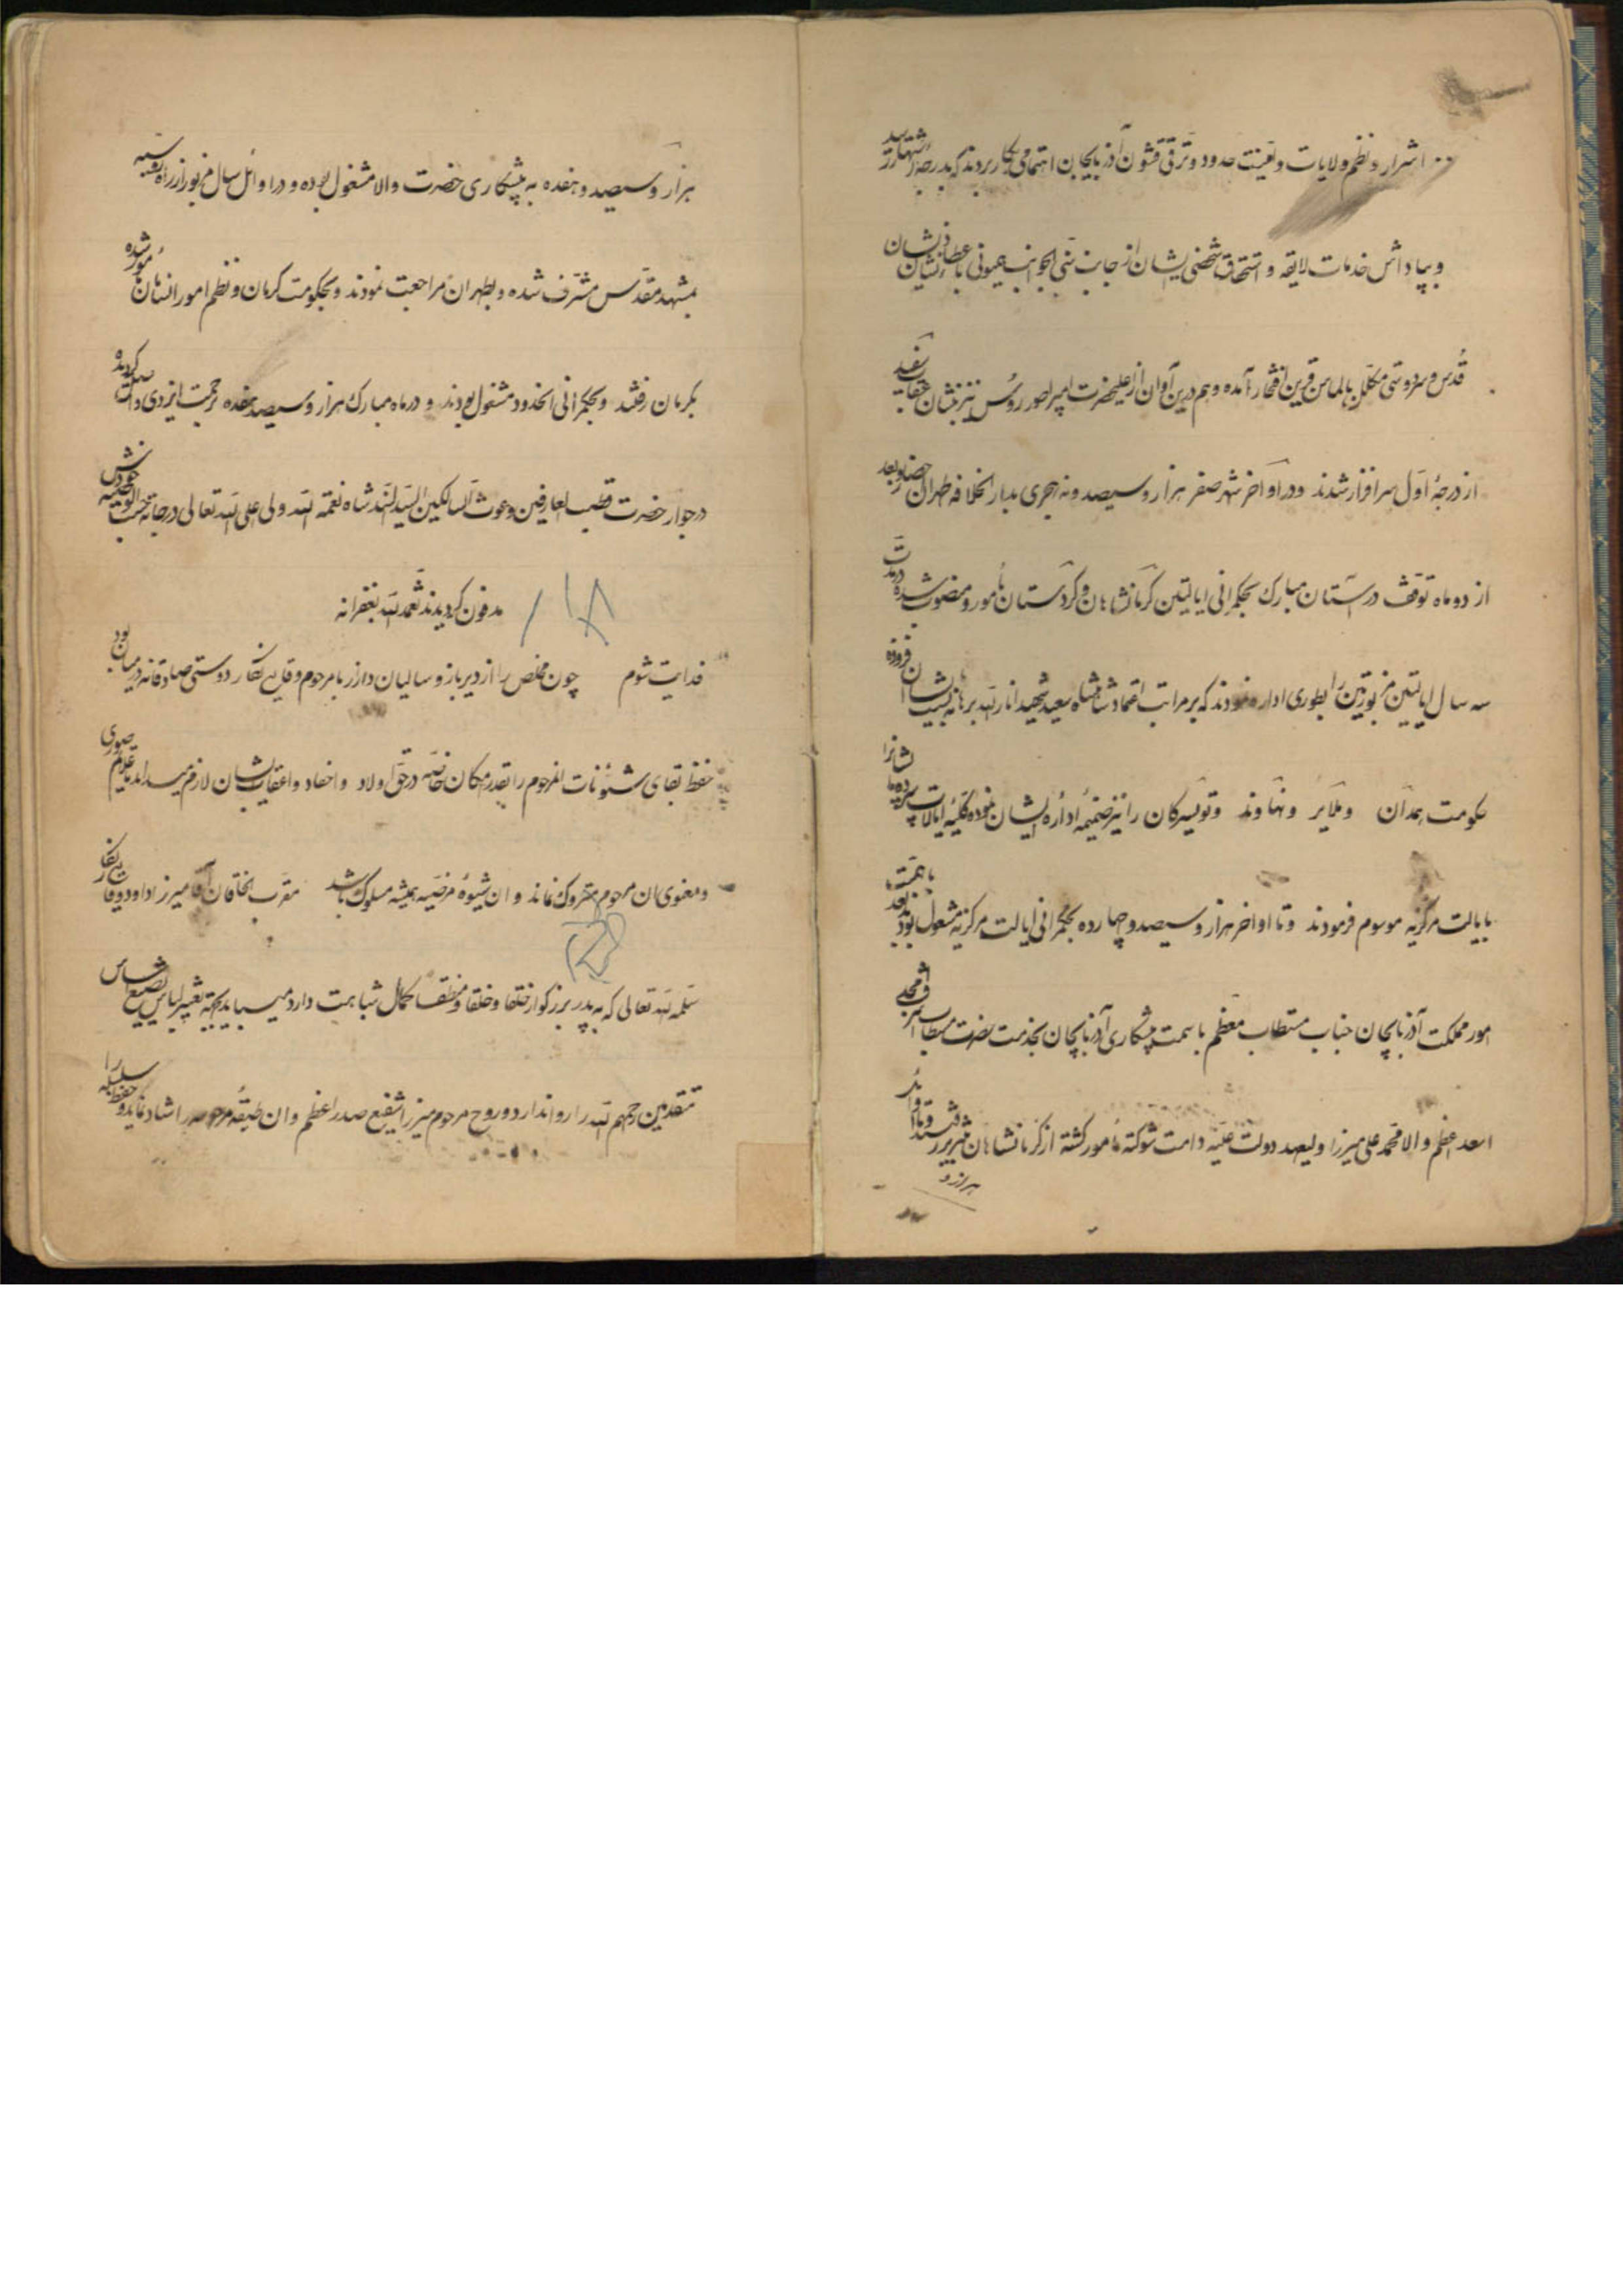 اشرار و نظم ولایات و تعینت حدود و ترقی قشون آذربایجان اهتمامی بکار بردند که بدرجه اشتهار رسید
و بپاداش خدمات لایقه و استحقاق شخصی ایشان از جانب سنی الجوانب همیونی باعطای نشان ذیشان
قدس و سردوشی مکلل بالماس قرین افتخار آمده و هم درین آوان از اعلیحضرت امپراطور روس نیز بنشان عقاب سفید
از درجهٔ اول سرافراز شدند و در اواخر شهر صفر هزار و سیصد و نه هجری بدار الخلافه طهران احضار و بعد
از دو ماه توقف در آستان مبارک بحکمرانی ایالتین کرمانشاهان و کردستان مأمور و منصوب شده در مدت
سه سال ایالتین مزبورتین را بطوری اداره نمودند که بر مراتب اعتماد شاهنشاه سعید شهید انار الله برهانه نسبت بایشان افزوده
حکومت همدان و ملایر و نهاوند و تویسرکان را نیز ضمیمهٔ ادارهٔ ایشان نموده کلیهٔ ایالات سپرده بایشانرا
بایالت مرکزیه موسوم فرمودند و تا اواخر هزار و سیصد و چهارده بحکمرانی ایالت مرکزیه مشغول بودند بعد باهمیت
امور مملکت آذربایجان جناب مستطاب معظم با سمت پیشکاری آذربایجان بخدمت حضرت مستطاب اشرف امجد
اسعد اعظم والا محمد علی میرزا ولیعهد دولت علیه دامت شوکته مأمور گشته از کرمانشاهان به تبریز رفتند و تا اوائل
هزار و
هزار و سیصد و هفده به پیشکاری حضرت والا مشغول بوده و در اوائل سال مزبور از راه روسیه
بمشهد مقدس مشرف شده و بطهران مراجعت نمودند و بحکومت کرمان و نظم امور انسامان مأمور شده
بکرمان رفتند و بحکمرانی انحدود مشغول بودند و در ماه مبارک هزار و سیصد هفده برحمت ایزدی واصل گردیده
در جوار حضرت قطب العارفین و غوث السالکین السید السند شاه نعمة الله ولی اعلی الله تعالی درجاته حسب الوصیه خودش
مدفون گردیدند تغمده الله بغفرانه
فدایت شوم چون مخلص را از دیرباز و سالیان دراز با مرحوم وقایع نگار دوستی صادقانه در میان بود
حفظ بقای شئونات انمرحوم را بقدر امکان خاصه در حق اولاد و احفاد و اعقاب ایشان لازم میداند تا علوم صوری
و معنوی ان مرحوم متروک نماند و ان شیوهٔ مرضیه همیشه مسلوک باشد مقرب الخاقان آقا میرزا داود وقایع نگار
سلمه الله تعالی که به پدر بزرگوار خلقا و خلقا و منطقا کمال شباهت دارد میباید بجهة تغییر لباس تضییع اساس
متقدمین رحمهم الله را روا ندارد و روح مرحوم میرزا شفیع صدر اعظم و ان طبقهٔ مرحومه را شاد نماید و حفظ سلسله را